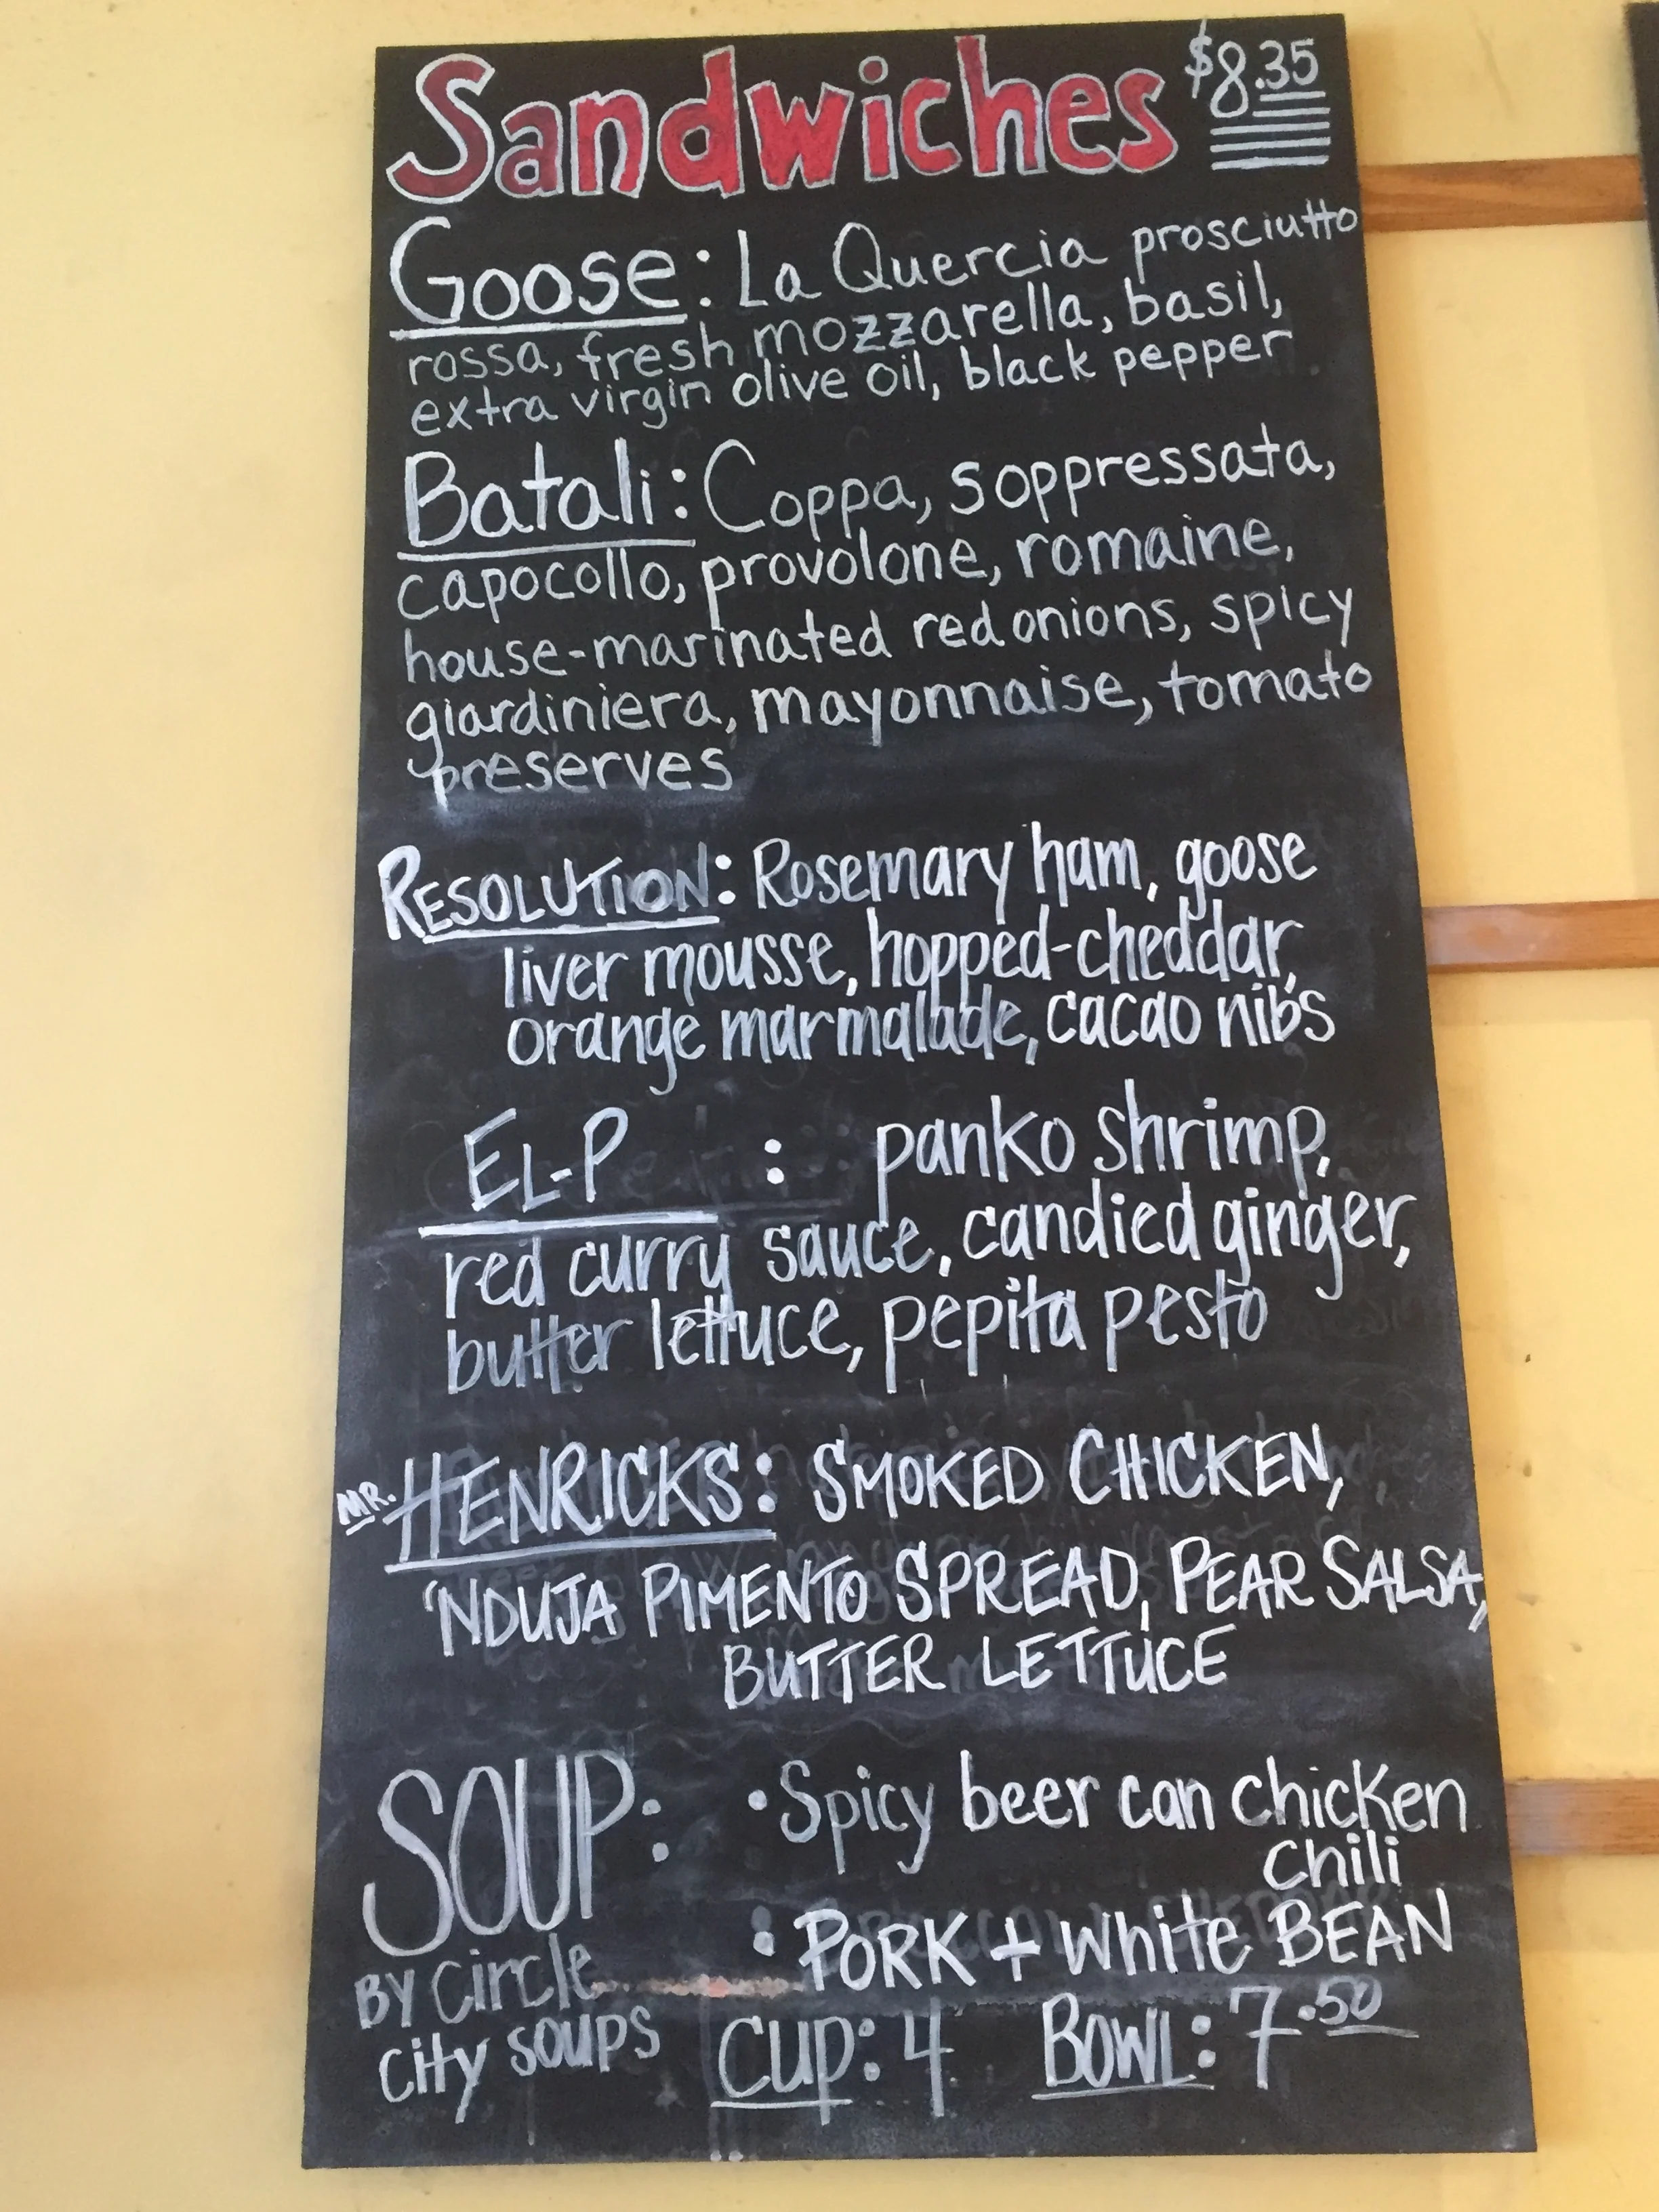 Sandwiches $8.35
Goose: La Quercia prosciutto
rossa, fresh mozzarella, basil,
extra virgin olive oil, black pepper
Batali: Coppa, soppressata,
capocollo, provolone, romaine,
house-marinated red onions, spicy
giardiniera, mayonnaise, tomato
preserves
RESOLUTION: Rosemary ham, goose
liver mousse, hopped-cheddar,
orange marmalade, cacao nibs
EL-P : panko shrimp,
red curry sauce, candied ginger,
butter lettuce, pepita pesto
MR. HENRICKS: SMOKED CHICKEN,
'NDUJA PIMENTO SPREAD, PEAR SALSA,
BUTTER LETTUCE
SOUP: • Spicy beer can chicken
chili
: PORK + white BEAN
BY Circle
City soups
CUP: 4 BOWL: 7.50